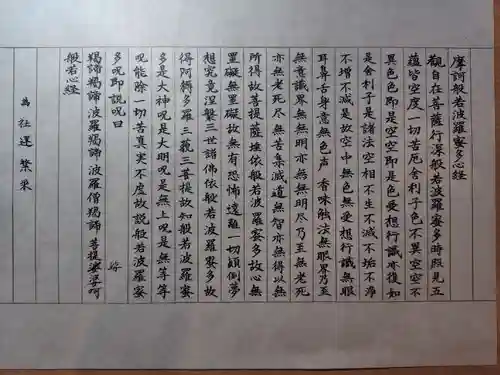 摩訶般若波羅蜜多心経
觀自在菩薩行深般若波羅蜜多時照見五
蘊皆空度一切苦厄舎利子色不異空空不
異色色即是空空即是色受想行識亦復如
是舎利子是諸法空相不生不滅不垢不浄
不増不減是故空中無色無受想行識無眼
耳鼻舌身意無色声香味触法無眼界乃至
無意識界無無明亦無無明尽乃至無老死
亦無老死尽無苦集滅道無智亦無得以無
所得故菩提薩埵依般若波羅蜜多故心無
罣礙無罣礙故無有恐怖遠離一切顛倒夢
想究竟涅槃三世諸佛依般若波羅蜜多故
得阿耨多羅三藐三菩提故知般若波羅蜜
多是大神呪是大明呪是無上呪是無等等
呪能除一切苦真実不虚故説般若波羅蜜
多呪即説呪曰
羯諦羯諦波羅羯諦波羅僧羯諦菩提娑婆訶
般若心経
為社運繁栄